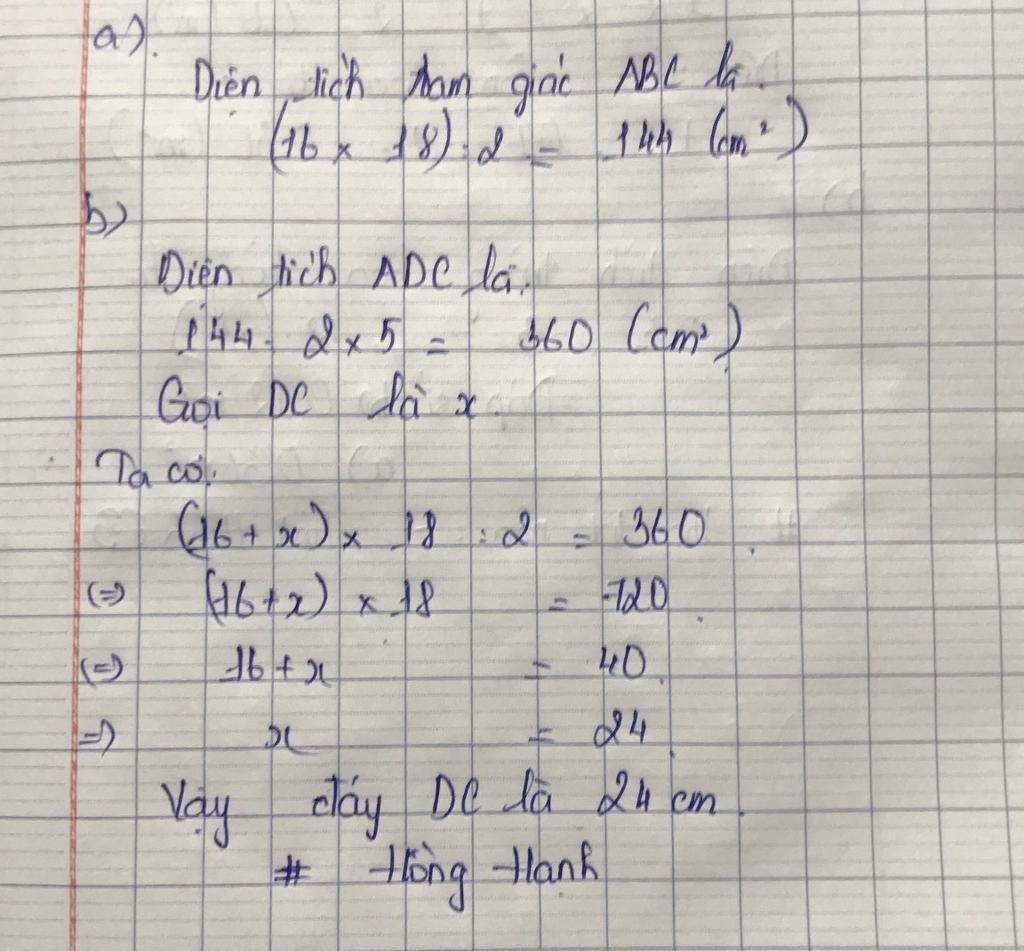 a).
Diện tích tam giác ABC là.
(16 x 18) : 2 = 144 (cm²)
b)
Diện tích ADC là.
144 : 2 x 5 = 360 (cm²)
Gọi DC là x.
Ta có:
(16 + x) x 18 : 2 = 360.
(=) (16 + x) x 18 = 720.
(=) 16 + x = 40.
=) x = 24.
Vậy đáy DC là 24 cm.
# Hồng Hạnh